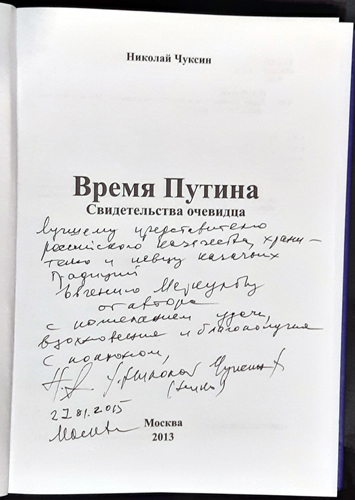 Николай Чуксин
Время Путина
Свидетельства очевидца
Лучшему представителю
российского казачества, храни-
телю и певцу казачьих
традиций
Евгению Меркулову
от автора
с пожеланием удачи,
вдохновения и благополучия
С поклоном,
27.01.2015
Москва
Москва
2013